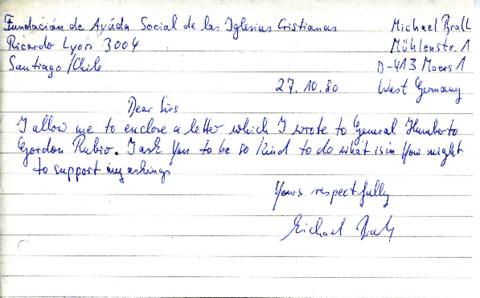 Fundación de Ayúda Social de las Iglesias Cristianas
Ricardo Lyon 3004
Santiago/Chile
Michael Brall
Mühlenstr. 1
D-413 Moers 1
West Germany
27.10.80
Dear Sirs
I allow me to enclose a letter which I wrote to General Humberto
Gordon Rubio. I ask You to be so kind to do what is in Your might
to support my askings
Yours respectfully
Michael Brall